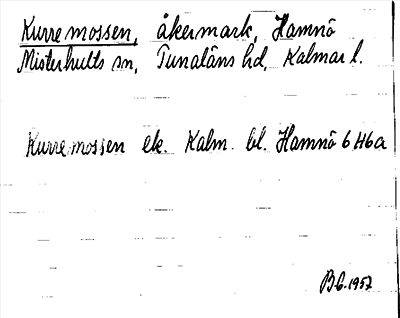 Kurremossen, åkermark, Hamnö
Misterhults sn, Tunaläns hd, Kalmar l.
Kurremossen ek. Kalm. bl. Hamnö 6 H6a
BG.1957